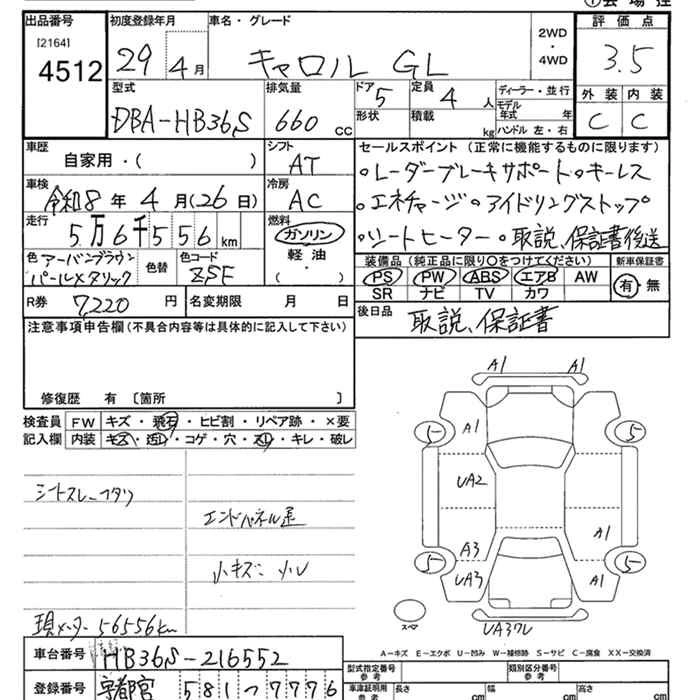 ①会場控
出品番号 初度登録年月 車名・グレード 2WD・4WD 評価点
[2164]
4512 29年4月 キャロル GL 3.5
型式 排気量 ドア 定員 ディーラー・並行 外装 内装
DBA-HB36S 660cc 5 4人 モデル年式 年 C C
形状 積載 kg ハンドル 左・右
車歴 シフト セールスポイント(正常に機能するものに限ります)
自家用・( ) AT ・レーダーブレーキサポート・キーレス
車検 冷房
令和8年4月(26日) AC ・エネチャージ・アイドリングストップ
走行 燃料
5万6千556km ガソリン ・シートヒーター・取説、保証書後送
軽油・( )
色 アーバンブラウンパールメタリック 色替 色コード ZSF
装備品(純正品に限り○をつけてください) 新車保証書
PS PW ABS エアB AW 有・無
SR ナビ TV カワ
R券 7,220円 名変期限 月 日 後日品 取説、保証書
注意事項申告欄(不具合内容等は具体的に記入して下さい)
修復歴 有〔箇所 〕
検査員記入欄 FW キズ・飛石・ヒビ割・リペア跡・×要
内装 キズ・汚レ・コゲ・穴・スレ・キレ・破レ
シートスレ
エンドパネル
小キズ 小U
現メーター 56556km
A1 A1
5 A1 5
UA2
A3 A1
5 UA3 A1 5
スペア
A-キズ E-エクボ U-凹み W-補修跡 S-サビ C-腐食 XX-交換済
車台番号 HB36S-216552
登録番号 宇都宮 581つ7776
型式指定番号 参考 類別区分番号 参考
車庫証明用参考 長さ cm 幅 cm 高さ cm